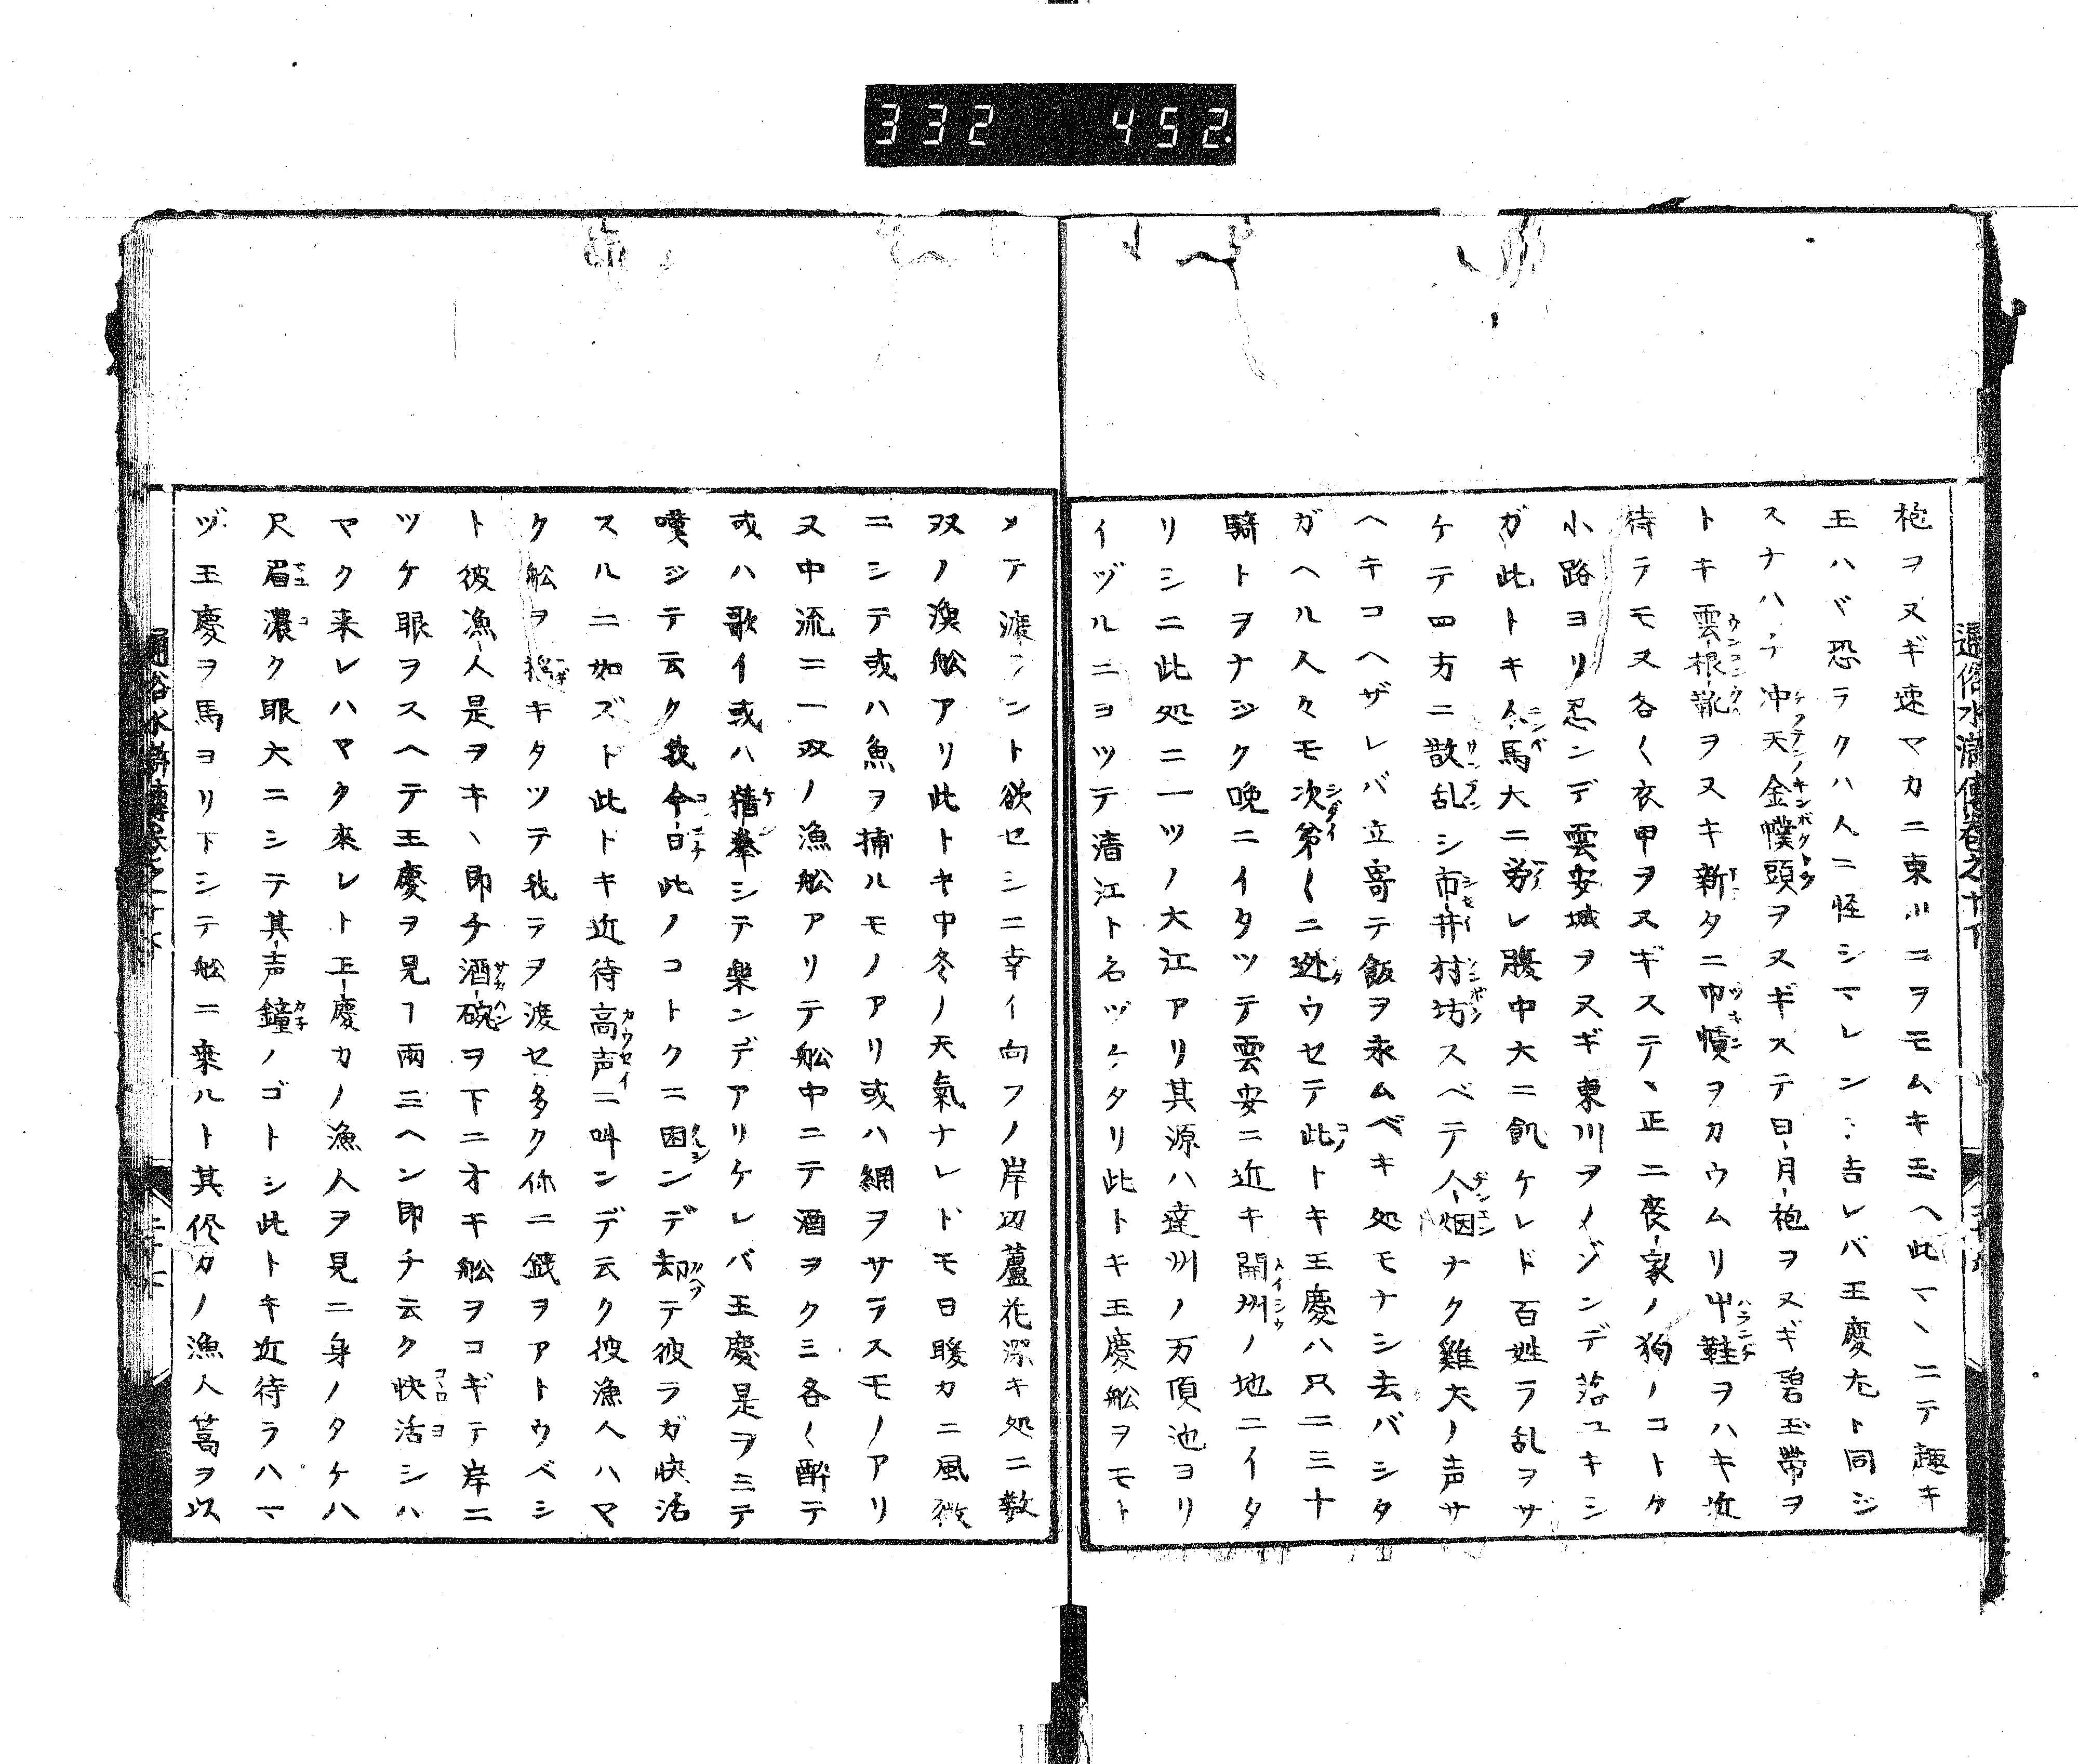 332 452
袍ヲヌギ速マカニ東川ニヲモムキ玉ヘ此マヽニテ趣キ
玉ハヾ恐ラクハ人ニ怪シマレント告レバ王慶尤ト同ジ
スナハチ冲天金幞頭ヲヌギステ日月袍ヲヌギ碧玉帶ヲ
トキ雲根靴ヲヌキ新タニ巾幘ヲカウムリ鞋ヲハキ近
待ラモ又各〱衣甲ヲヌギステヽ正ニ喪家ノ狗ノコトク
小路ヨリ忍ンデ雲安城ヲヌギ東川ヲノゾンデ落ユキシ
ガ此トキ人馬大ニ労レ腹中大ニ飢ケレド百姓ラ乱ヲサ
ケテ四方ニ散乱シ市井村坊スベテ人烟ナク雞犬ノ声サ
ヘキコヘザレバ立寄テ飯ヲ求ムベキ処モナシ去バシタ
ガヘル人々モ次第〱ニ迯ウセテ此トキ王慶ハ只二三十
騎トヲナジク晩ニイタツテ雲安ニ近キ開州ノ地ニイタ
リシニ此処ニ一ツノ大江アリ其源ハ達州ノ万頂池ヨリ
イヅルニヨツテ清江ト名ヅケタリ此トキ王慶舩ヲモト
通俗水滸傳巻之十下
メテ渡ラント欲セシニ幸イ向フノ岸辺蘆花深キ処ニ数
双ノ漁舩アリ此トキ中冬ノ天氣ナレドモ日暖カニ風微
ニシテ或ハ魚ヲ捕ルモノアリ或ハ網ヲサラスモノアリ
又中流ニ一双ノ漁舩アリテ舩中ニテ酒ヲクミ各〱酔テ
或ハ歌イ或ハ猜拳シテ樂ンデアリケレバ王慶是ヲミテ
嘆ジテ云ク我今日此ノコトクニ困ンデ却テ彼ラガ快活
スルニ如ズト此トキ近待高声ニ叫ンデ云ク彼漁人ハマ
ク舩ヲ搖キタツテ我ラヲ渡セ多ク你ニ錢ヲアトウベシ
ト彼漁人是ヲキヽ即チ酒碗ヲ下ニオキ舩ヲコギテ岸ニ
ツケ眼ヲスヘテ王慶ヲ見ヿ兩三ヘン即チ云ク快活シハ
マク来レハマク來レト王慶カノ漁人ヲ見ニ身ノタケハ
尺眉濃ク眼大ニシテ其声鐘ノゴトシ此トキ近待ラハマ
ヅ王慶ヲ馬ヨリ下シテ舩ニ乗ルト其侭カノ漁人篙ヲ以
通俗水滸傳巻之